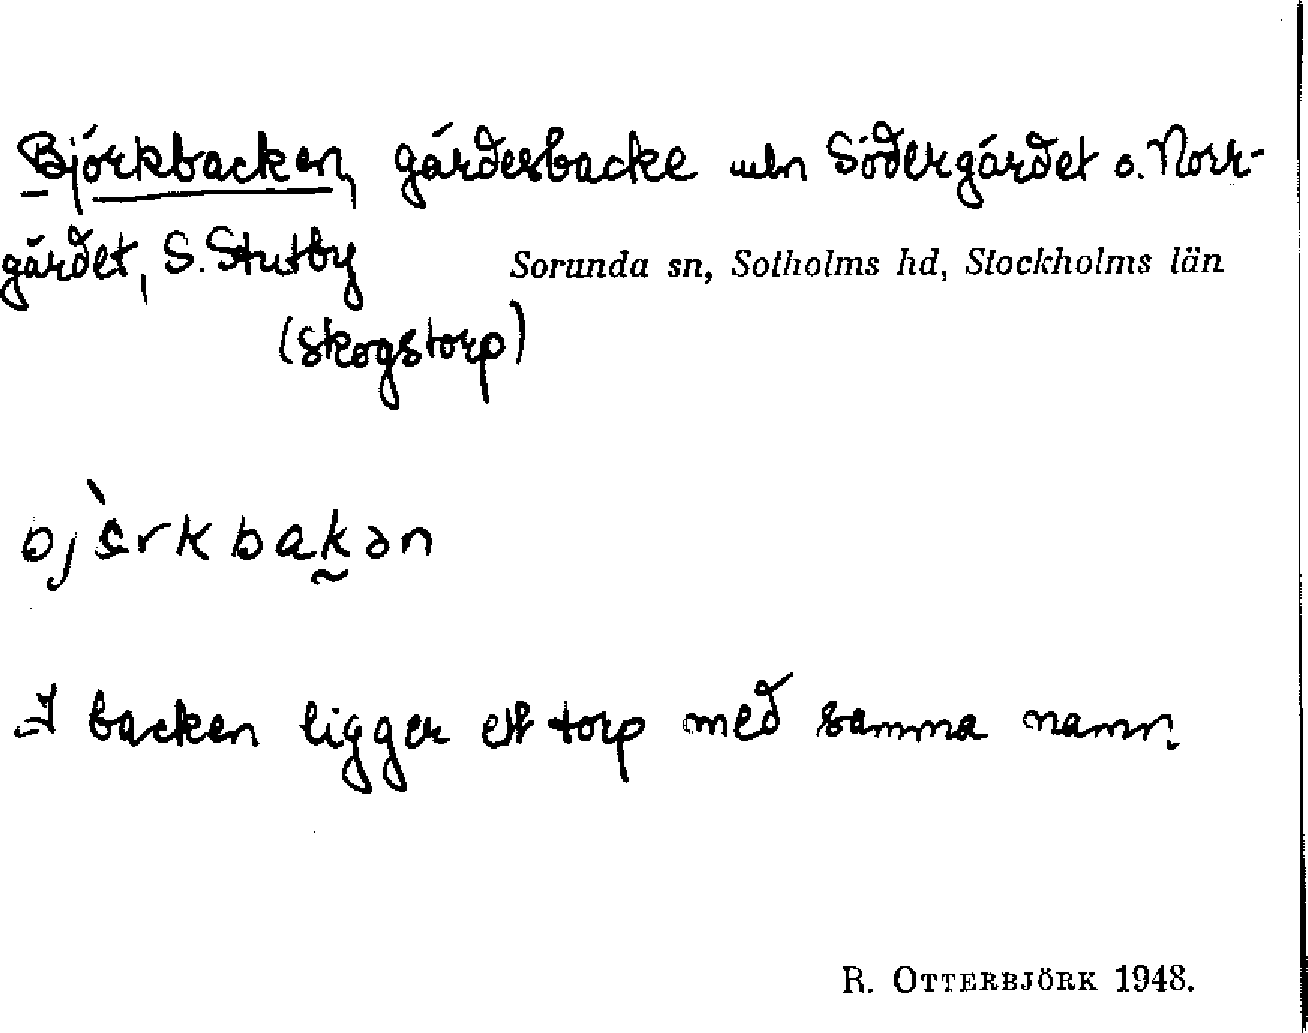 Björkbacken, gärdesbacke mln Södergärdet o. Norr-
gärdet, S. Stutby
Sorunda sn, Sotholms hd, Stockholms län
(Skogstorp)
I backen ligger ett torp med samma namn.
R. OTTERBJÖRK 1948.